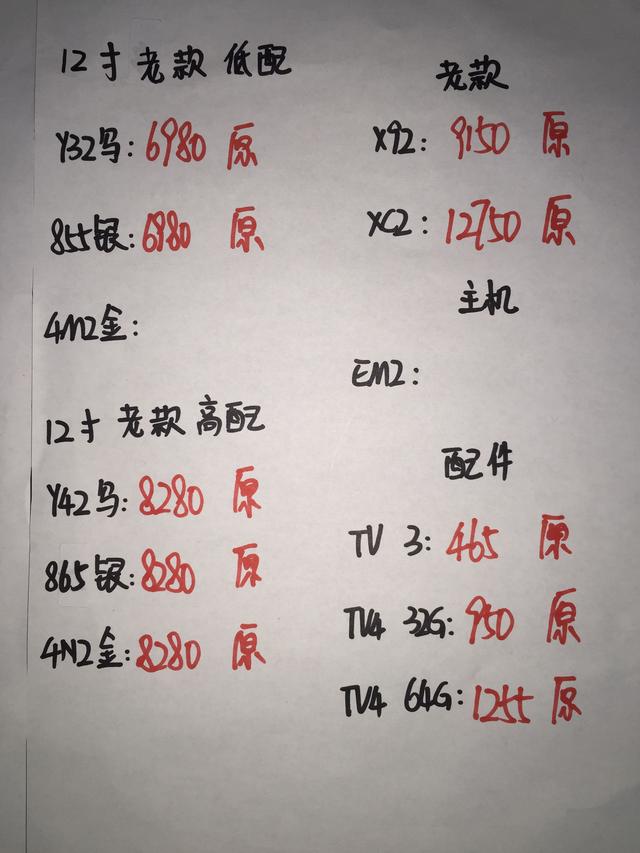 12寸 老款 低配
Y32鸟: 6980 原
855银: 6980 原
4M2金:
12寸 老款 高配
Y42鸟: 8280 原
865银: 8280 原
4N2金: 8280 原
老款
X92: 9150 原
XC2: 12750 原
主机
EM2:
配件
TV 3: 465 原
TV4 32G: 950 原
TV4 64G: 1255 原